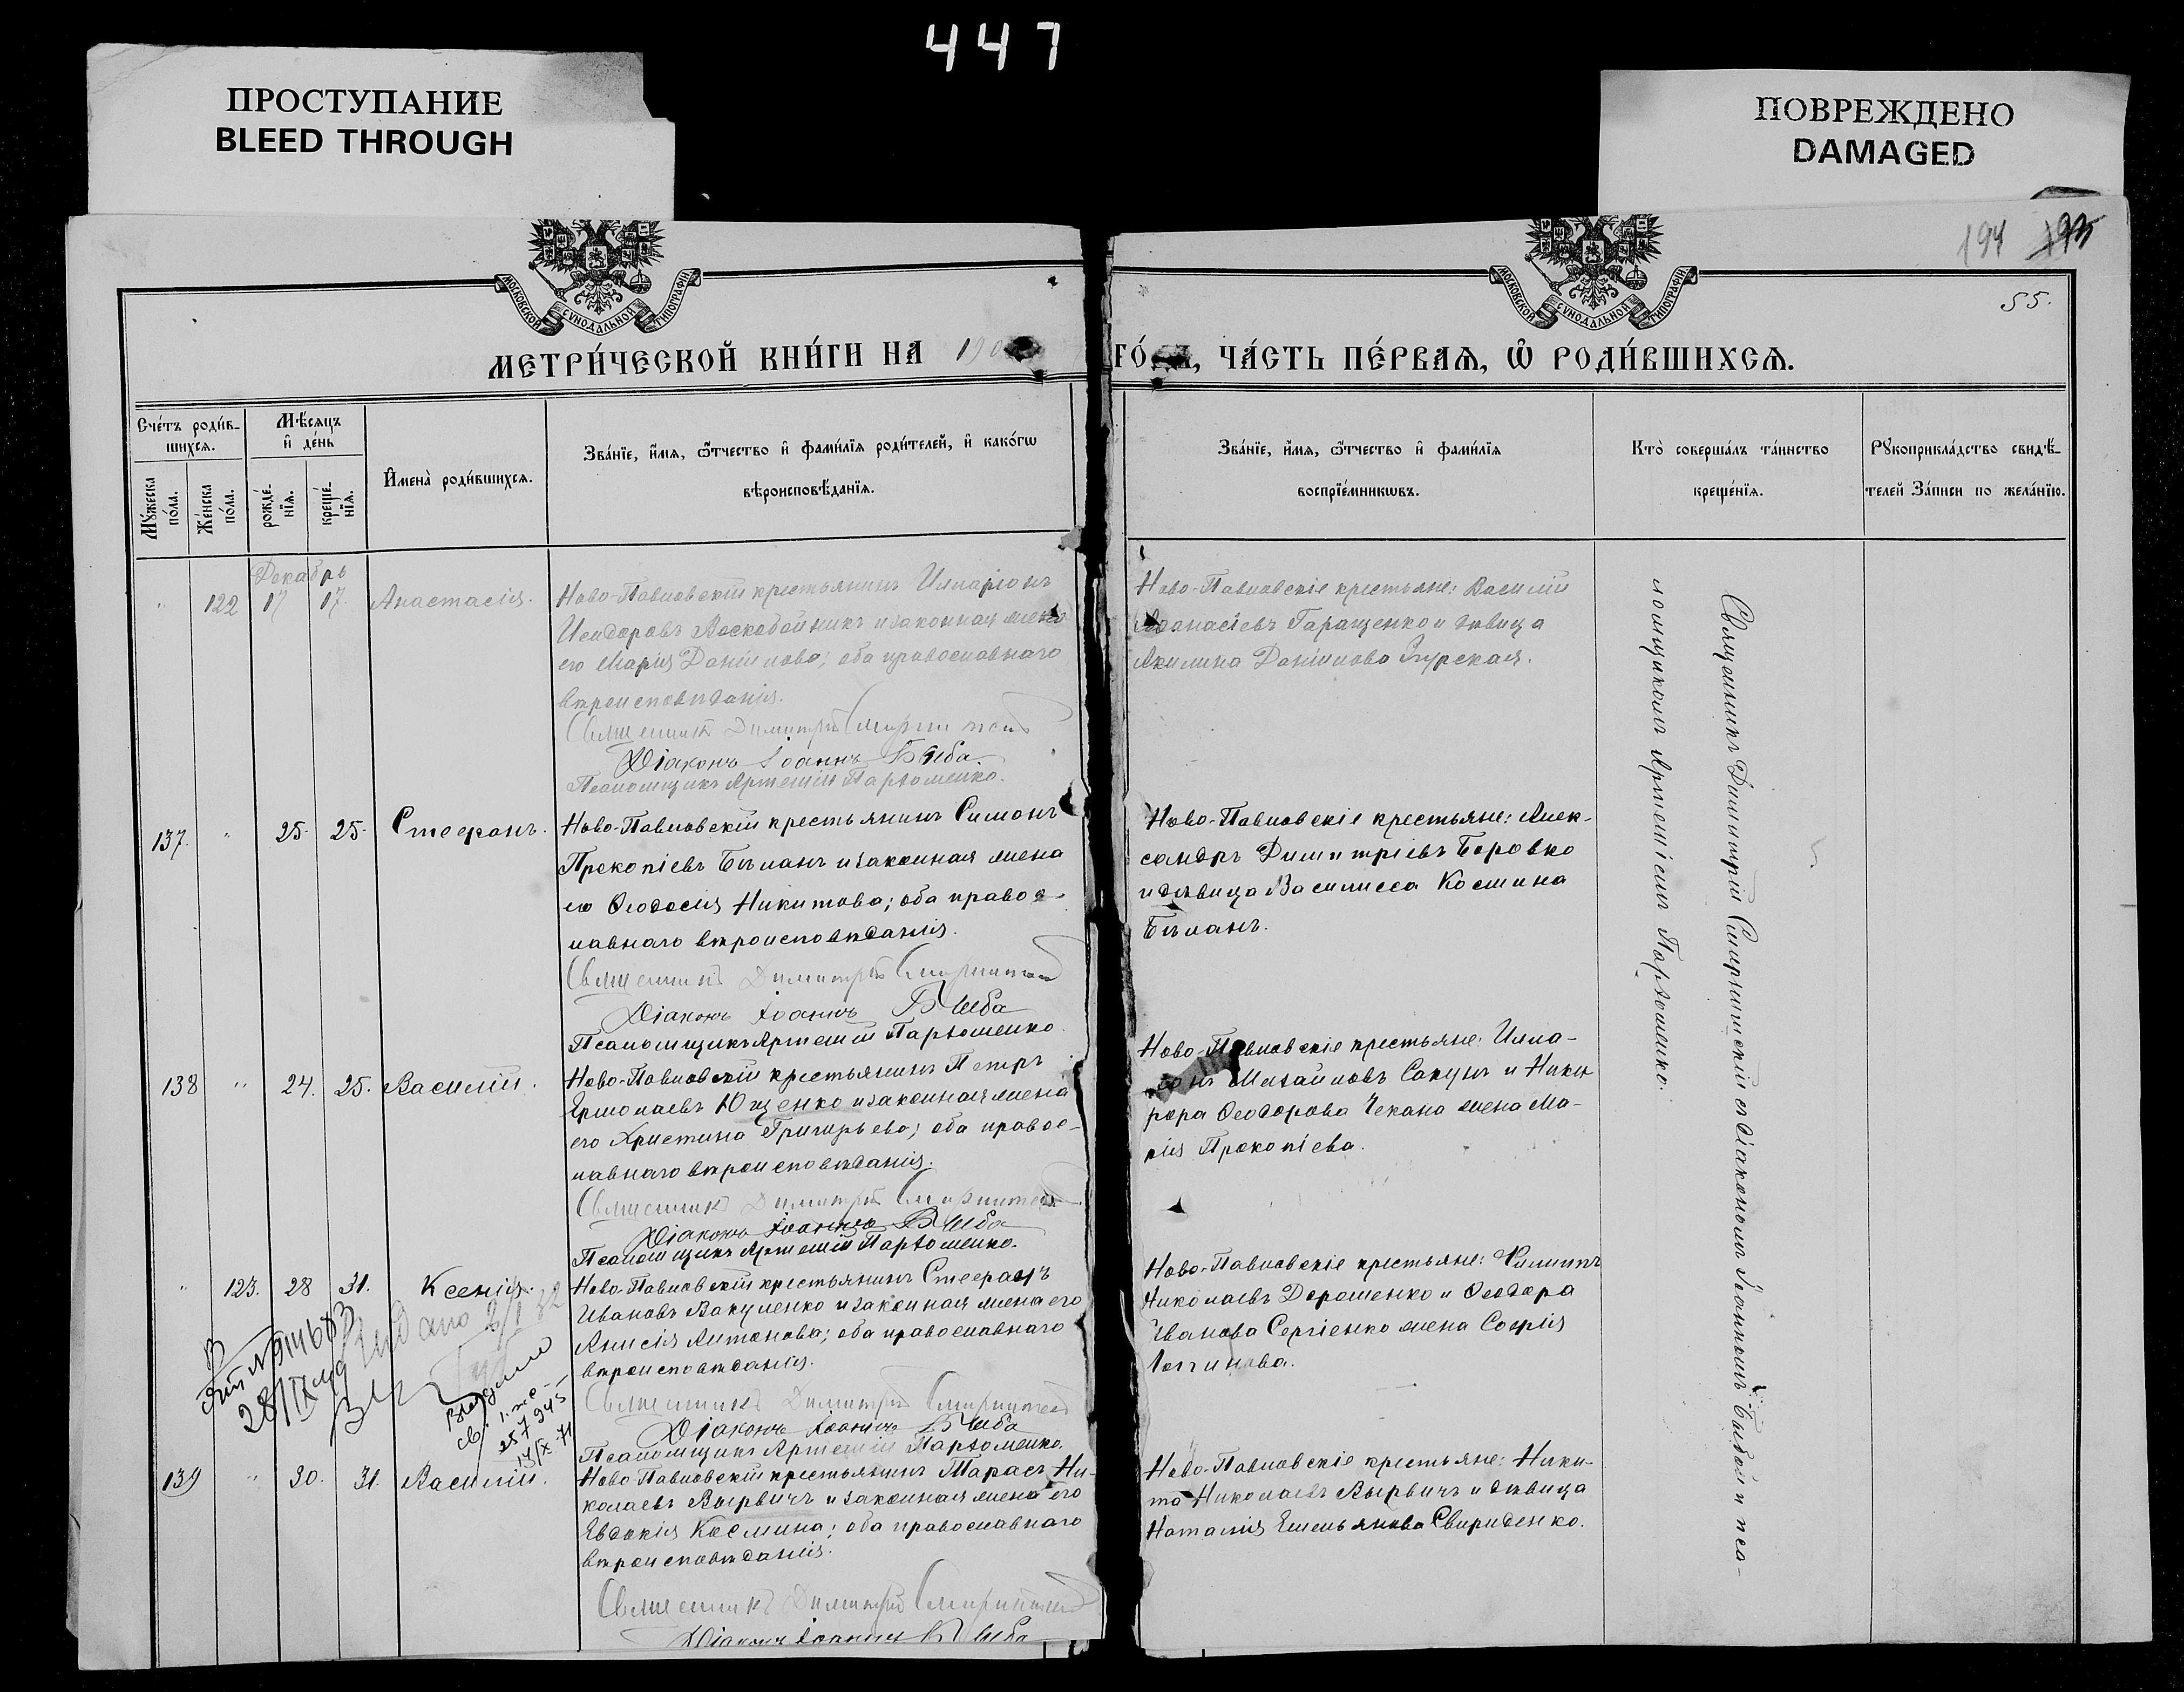 447
ПРОСТУПАНИЕ
BLEED THROUGH
ПОВРЕЖДЕНО
DAMAGED
194
55.
МОСКОВСКОЙ СѴНОДАЛЬНОЙ ТИПОГРАФІИ
МОСКОВСКОЙ СѴНОДАЛЬНОЙ ТИПОГРАФІИ
МЕТРИ́ЧЕСКОЙ КНИ́ГИ НА 190
ЧА́СТЬ ПЕ́РВАѦ, Ѿ РОДИ́ВШИХСѦ.
Сче́тъ роди́в-
шихсѧ.
Мꙋ́жеска по́ла.
Же́нска по́ла.
Мѣ́сѧцъ
и҆ де́нь
рожде́-
нїѧ.
креще́-
нїѧ.
И҆мена̀ роди́вшихсѧ.
Зва́нїе, и҆́мѧ, ѻ҆́тчество и҆ фами́лїѧ роди́телей, и҆ како́гѡ
вѣроисповѣ́данїѧ.
Зва́нїе, и҆́мѧ, ѻ҆́тчество и҆ фами́лїѧ
воспрїе́мникѡвъ.
Кто̀ соверша́лъ та́инство
креще́нїѧ.
Рꙋкоприкла́дство свидѣ́-
телей За́писи по жела́нїю.
Декабрь
122 17 17. Анастасія.
Ново-Павловскій крестьянинъ Иларіонъ
Исидоровъ Воскобойникъ и законная жена
его Марія Даніилова; оба православнаго
вѣроисповѣданія.
Священникъ Димитрій
Діаконъ Іоаннъ Биба
Псаломщикъ Артемій Пархоменко.
Ново-Павловскіе крестьяне: Василій
Аѳанасіевъ Гаращенко и дѣвица
Акилина Даніилова Згурская.
137. " 25. 25. Стефанъ.
Ново-Павловскій крестьянинъ Симонъ
Прокопіевъ Бѣланъ и законная жена
его Ѳеодосія Никитова; оба правос-
лавнаго вѣроисповѣданія.
Священникъ Димитрій
Діаконъ Іоаннъ Биба
Псаломщикъ Артемій Пархоменко
Ново-Павловскіе крестьяне: Алек-
сандръ Димитріевъ Боровко
и дѣвица Василисса Космина
Бѣланъ.
138 " 24. 25. Василій.
Ново-Павловскій крестьянинъ Петръ
Ермолаевъ Ющенко и законная жена
его Христина Григорьева; оба правос-
лавнаго вѣроисповѣданія.
Священникъ Димитрій
Діаконъ Іоаннъ Биба
Псаломщикъ Артемій Пархоменко.
Ново-Павловскіе крестьяне: Ила-
ріонъ Михайловъ Сакунъ и Ники-
фора Ѳеодорова Чекана жена Ма-
рія Прокопіева.
" 123. 28 31. Ксенія.
Ново-Павловскій крестьянинъ Стефанъ
Ивановъ Вакуленко и законная жена его
Анисія Антонова; оба православнаго
вѣроисповѣданія.
Священникъ Димитрій
Діаконъ Іоаннъ Биба
Псаломщикъ Артемій Пархоменко.
Ново-Павловскіе крестьяне: Филиппъ
Николаевъ Дорошенко и Ѳеодора
Иванова Сергіенко жена Софія
Логгинова.
139 " 30. 31. Василій.
Ново-Павловскій крестьянинъ Тарасъ Ни-
колаевъ Вырвичъ и законная жена его
Евдокія Космина; оба православнаго
вѣроисповѣданія.
Священникъ Димитрій
Діаконъ Іоаннъ Биба
Ново-Павловскіе крестьяне: Ники-
та Николаевъ Вырвичъ и дѣвица
Наталія Емельянова Свириденко.
Священникъ Димитрій съ діакономъ Іоанномъ Бибой и пса-
ломщикомъ Артеміемъ Пархоменко.